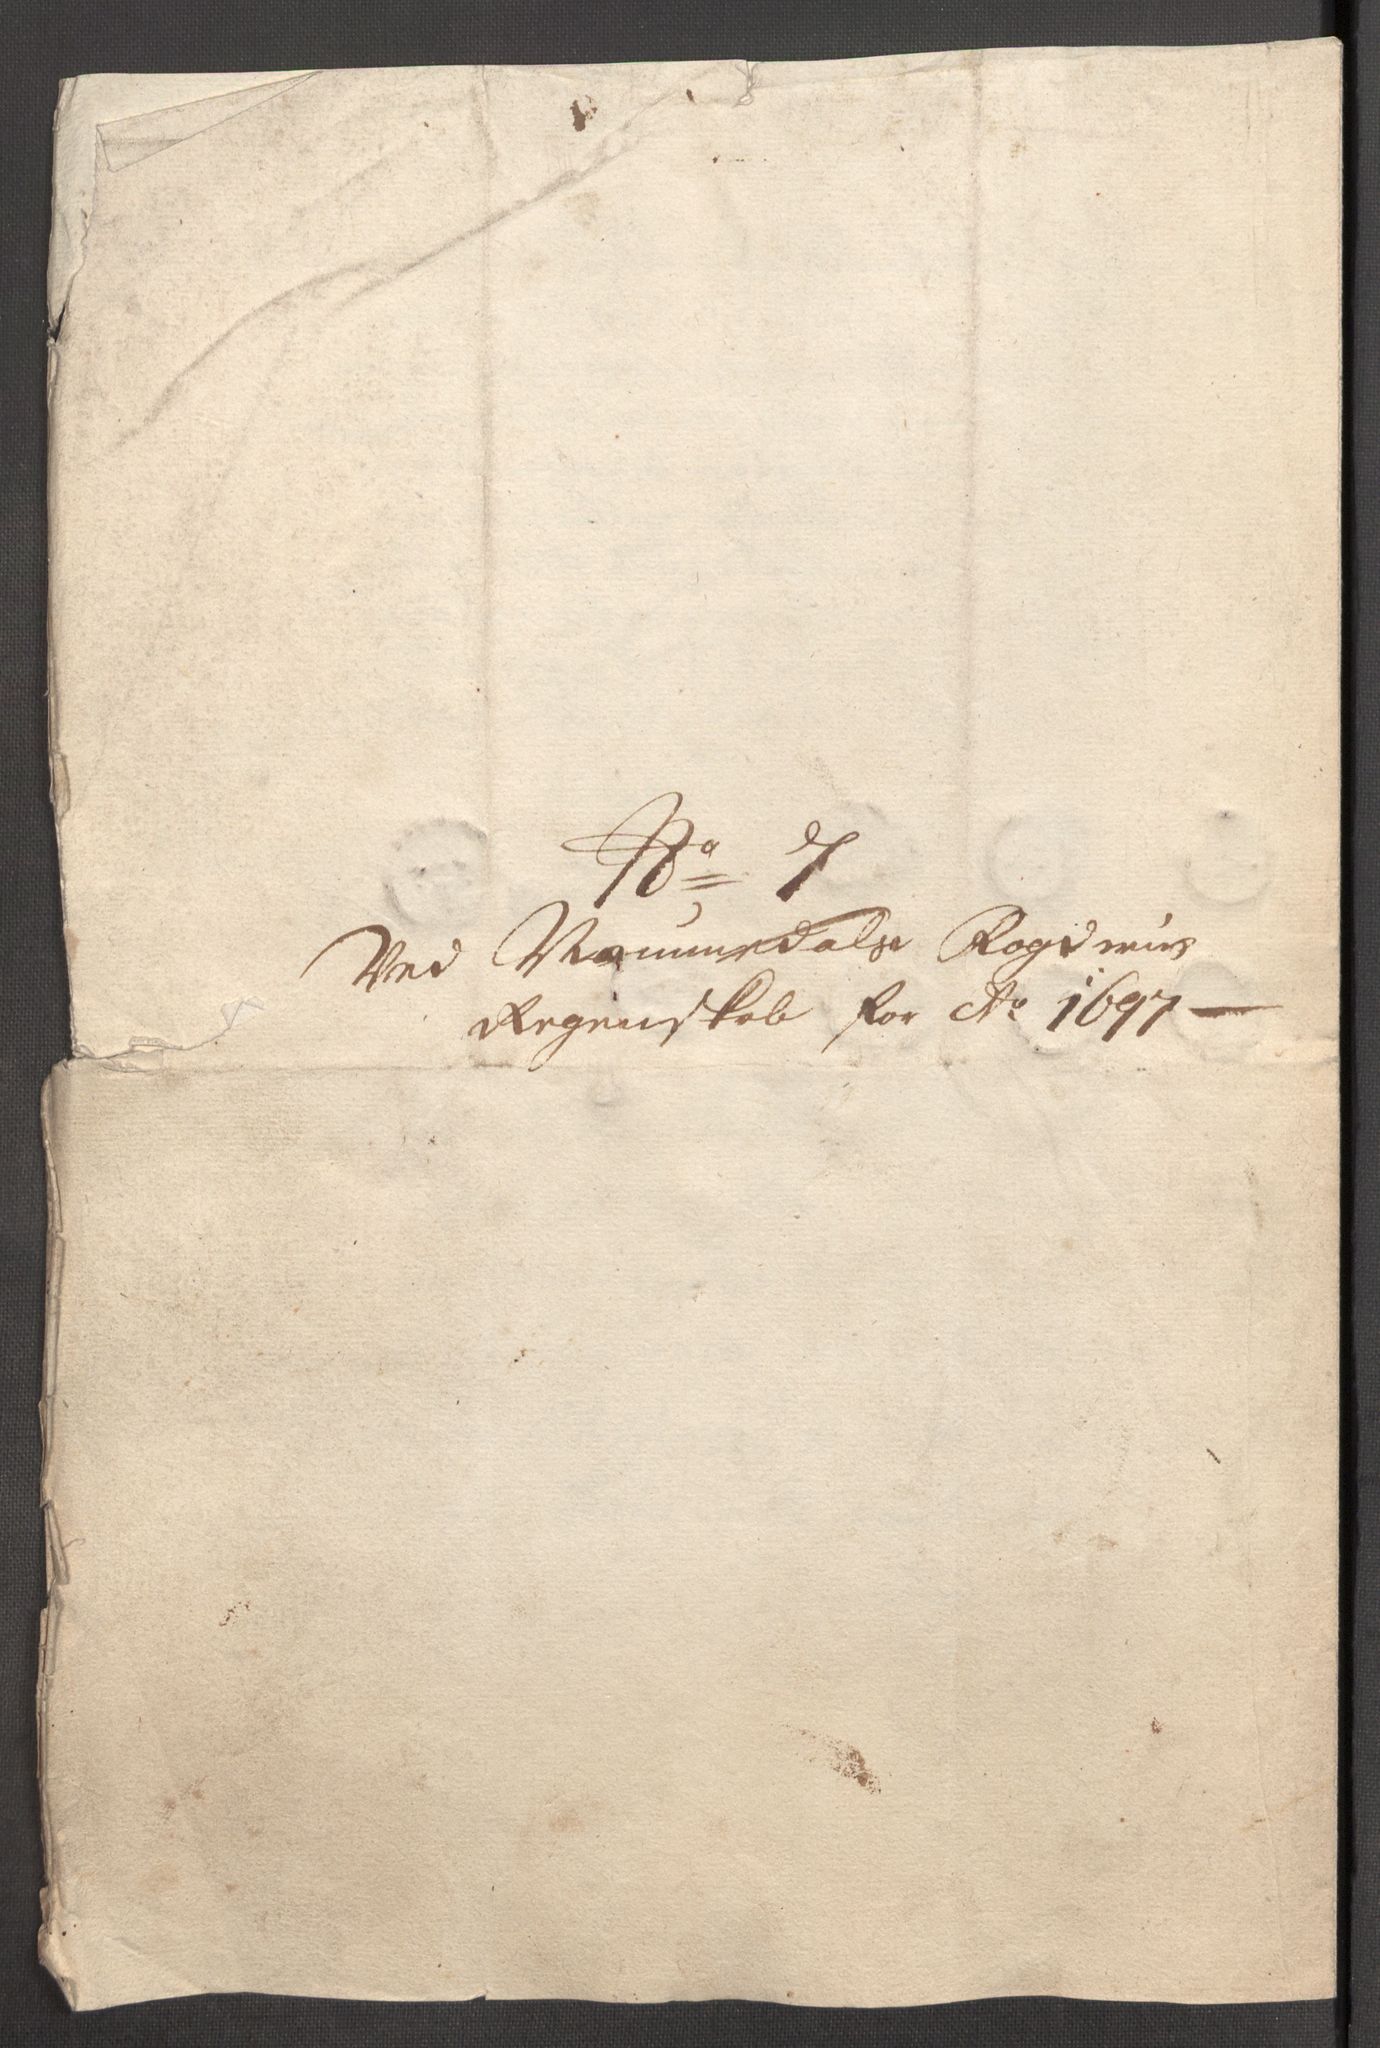 No 7
Ved Nummedals Fogderies
Regenskab for Ao 1697